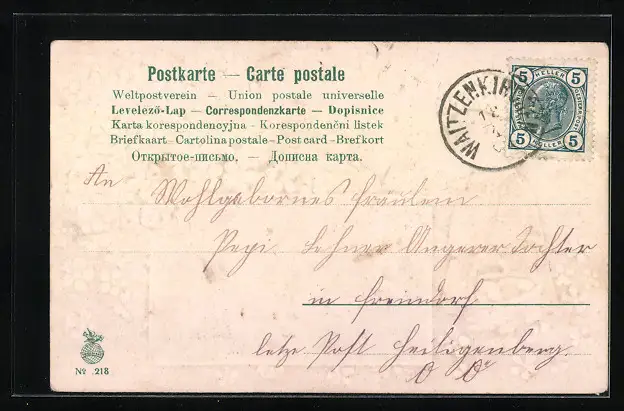 Postkarte — Carte postale
Weltpostverein — Union postale universelle
Levelező-Lap — Correspondenzkarte — Dopisnice
Karta korespondencyjna - Korespondenčni listek
Briefkaart - Cartolina postale - Post card - Brefkort
Открытое-письмо. — Дописна карта.
5 HELLER 5
WAITZENKIR
5 HELLER 5
An Wohlgebornes Fräulein
Pepi Lehner Ungerer Tochter
in Freindorf
letze Post Heiligenberg.
O Oe
No. 218